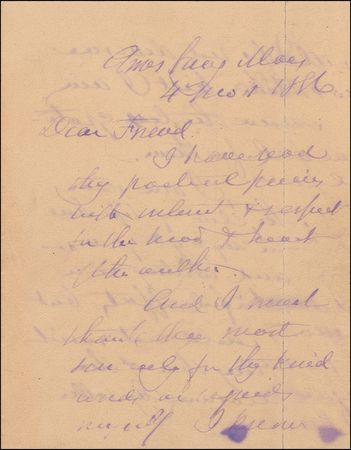 Amesbury Mass
4 mo 1886
Dear Friend
I have read
thy poetical pieces
with interest & respect
for the mind & heart
of the author.
And I must
thank thee most
sincerely for thy kind
words as regards
myself I know